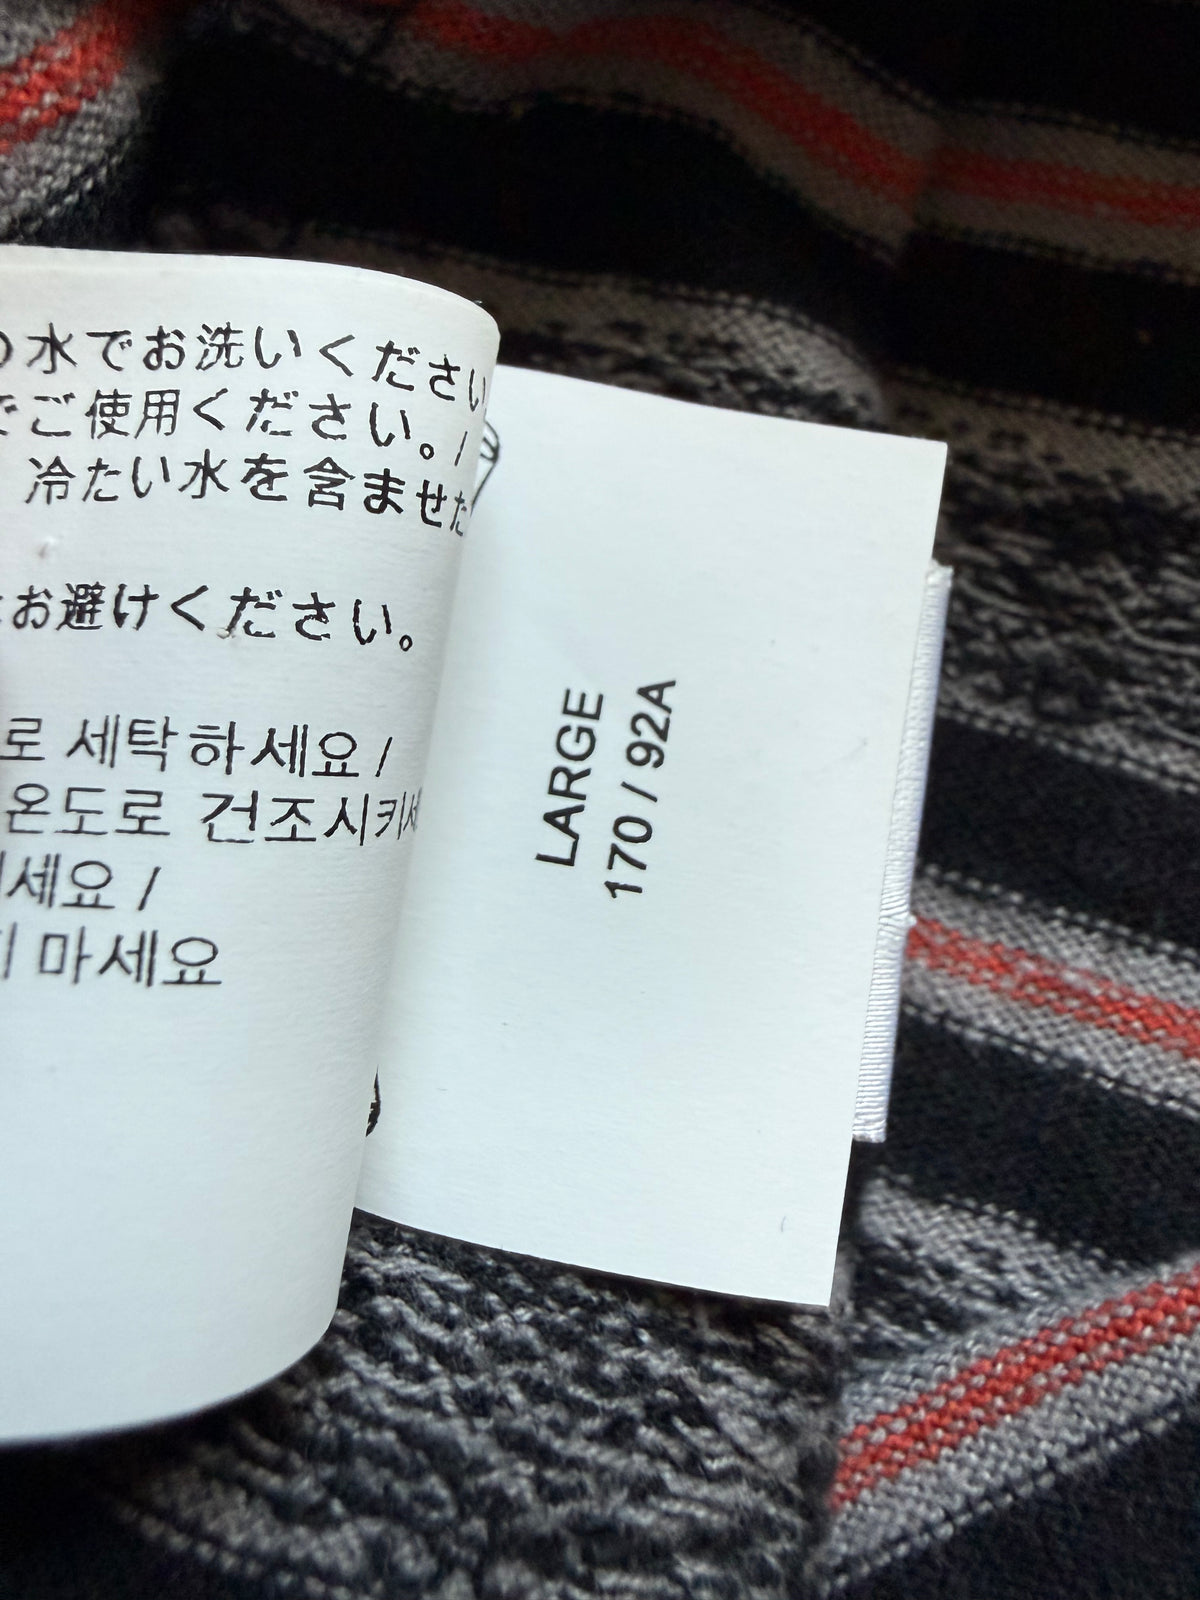 水でお洗いください
ご使用ください。/
冷たい水を含ませた
お避けください。
로 세탁하세요 /
온도로 건조시키세
세요 /
마세요
LARGE
170 / 92A